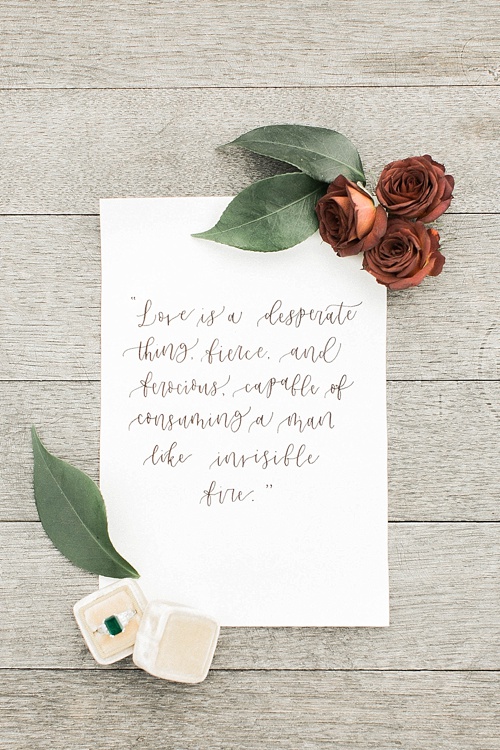 "Love is a desperate
thing, fierce, and
ferocious, capable of
consuming a man
like invisible
fire."